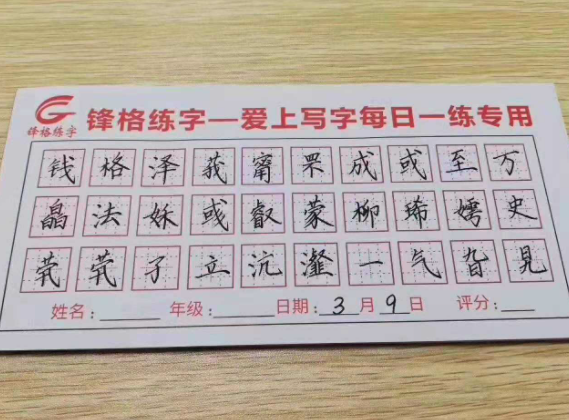 锋格练字
锋格练字—爱上写字每日一练专用
钱格泽莪甯罘成或至万
晶法姝或叡蒙柳琋嫮史
茕茕子立沆瀣一气旮见
姓名:______ 年级:______ 日期: 3 月 9 日 评分:___